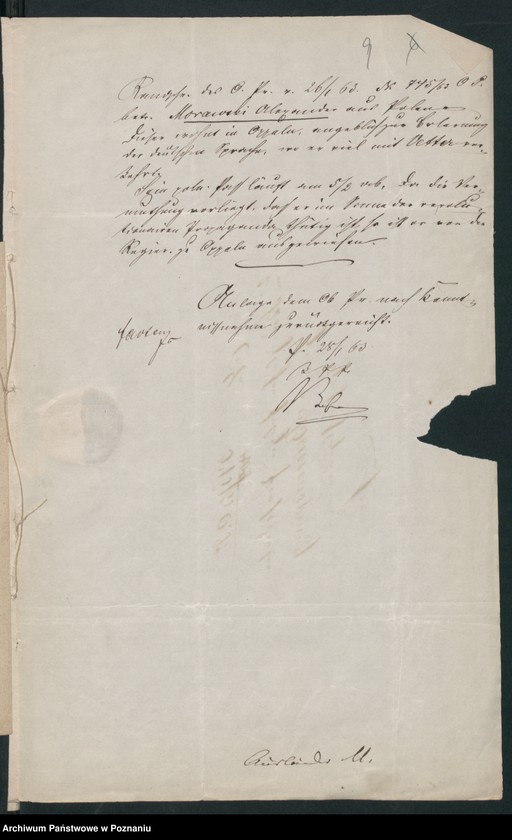 9
Rundschr. des O. Pr. v. 26/1 63. No 775/63 O. P.
betr. Morawski Alexander aus Polen.
Dieser wohnt in Oppeln, angeblich zur Erlernung
der deutschen Sprache, wo er viel mit
verkehrt.
Sein poln. Paß läuft am 5/2 ab. Da die Ver-
muthung vorliegt, daß er im Sinne der revolu-
tionairen Propaganda thätig ist, so ist er von der
Regier. zu Oppeln ausgewiesen.
Anlage dem Ob. Pr. nach Kennt-
nißnahme zurückgereicht.
P. 28/1 63
Ausländer M.
Archiwum Państwowe w Poznaniu